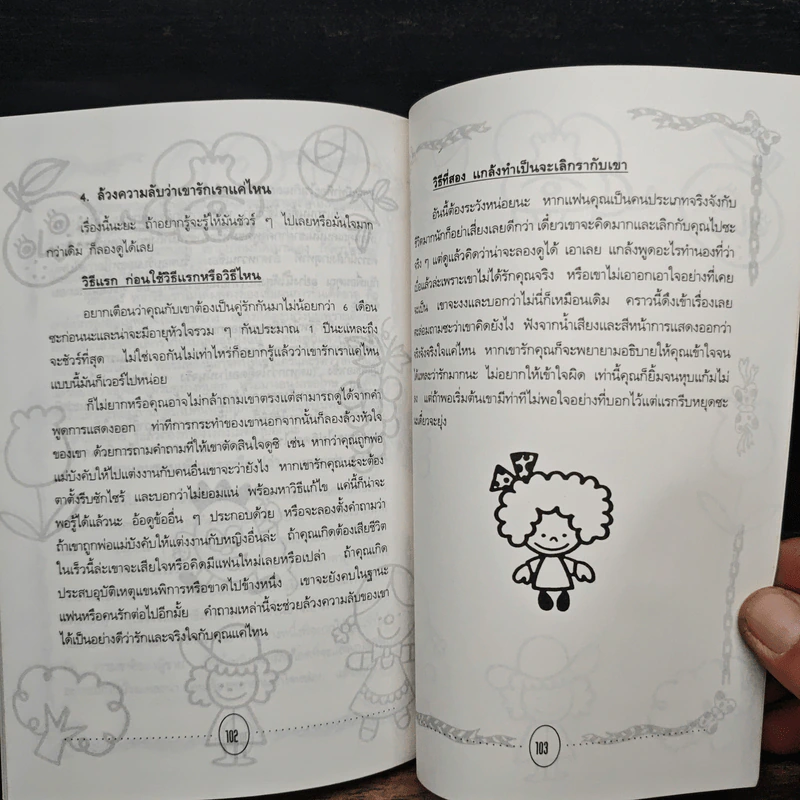 4. ล้วงความลับว่าเขารักเราแค่ไหน
เรื่องนี้นะยะ ถ้าอยากรู้จะรู้ให้มันชัวร์ ๆ ไปเลยหรือมั่นใจมาก
กว่าเดิม ก็ลองดูได้เลย
วิธีแรก ก่อนใช้วิธีแรกหรือวิธีไหน
อยากเตือนว่าคุณกับเขาต้องเป็นคู่รักกันมาไม่น้อยกว่า 6 เดือน
ซะก่อนนะและน่าจะมีอายุหัวใจรวม ๆ กันประมาณ 1 ปีนะแหละถึง
จะชัวร์ที่สุด ไม่ใช่เจอกันไม่เท่าไหร่ก็อยากรู้แล้วว่าเขารักเราแค่ไหน
แบบนี้มันก็เวอร์ไปหน่อย
ก็ไม่ยากหรือคุณอาจไม่กล้าถามเขาตรงแต่สามารถดูได้จากคำ
พูดการแสดงออก ท่าทีการกระทำของเขานอกจากนั้นก็ลองล้วงหัวใจ
ของเขา ด้วยการถามคำถามที่ให้เขาตัดสินใจดูซิ เช่น หากว่าคุณถูกพ่อ
แม่บังคับให้ไปแต่งงานกับคนอื่นเขาจะว่ายังไง หากเขารักคุณนะจะต้อง
ตาตั้งรีบซักไซร้ และบอกว่าไม่ยอมแน่ พร้อมหาวิธีแก้ไข แค่นี้ก็น่าจะ
พอรู้ได้แล้วนะ อ้อดูข้ออื่น ๆ ประกอบด้วย หรือจะลองตั้งคำถามว่า
ถ้าเขาถูกพ่อแม่บังคับให้แต่งงานกับหญิงอื่นล่ะ ถ้าคุณเกิดต้องเสียชีวิต
ในเร็ววันี้ล่ะเขาจะเสียใจหรือคิดมีแฟนใหม่เลยหรือเปล่า ถ้าคุณเกิด
ประสบอุบัติเหตุแขนพิการหรือขาดไปข้างหนึ่ง เขาจะยังคบในฐานะ
แฟนหรือคนรักต่อไปอีกมั้ย คำถามเหล่านี้จะช่วยล้วงความลับของเขา
ได้เป็นอย่างดีว่ารักและจริงใจกับคุณแค่ไหน
102
วิธีที่สอง แกล้งทำเป็นจะเลิกรากับเขา
อันนี้ต้องระวังหน่อยนะ หากแฟนคุณเป็นคนประเภทจริงจังกับ
ชีวิตมากนักก็อย่าเสี่ยงเลยดีกว่า เดี๋ยวเขาจะคิดมากและเลิกกับคุณไปซะ
จริง ๆ แต่ดูแล้วคิดว่าน่าจะลองดูได้ เอาเลย แกล้งพูดอะไรทำนองที่ว่า
เบื่อแล้วล่ะเพราะเขาไม่ได้รักคุณจริง หรือเขาไม่เอาอกเอาใจอย่างที่เคย
จะเป็น เขาจะงงและบอกว่าไม่นี่ก็เหมือนเดิม คราวนี้ดึงเข้าเรื่องเลย
ตะล่อมถามซะว่าเขาคิดยังไง ฟังจากน้ำเสียงและสีหน้าการแสดงออกว่า
จริงจังจริงใจแค่ไหน หากเขารักคุณก็จะพยายามอธิบายให้คุณเข้าใจจน
ได้แหละว่ารักมากนะ ไม่อยากให้เข้าใจผิด เท่านี้คุณก็ยิ้มจนหุบแก้มไม่
ลง แต่ถ้าพอเริ่มต้นเขามีท่าทีไม่พอใจอย่างที่บอกไว้แต่แรกรีบหยุดซะ
นะเดี๋ยวจะยุ่ง
103